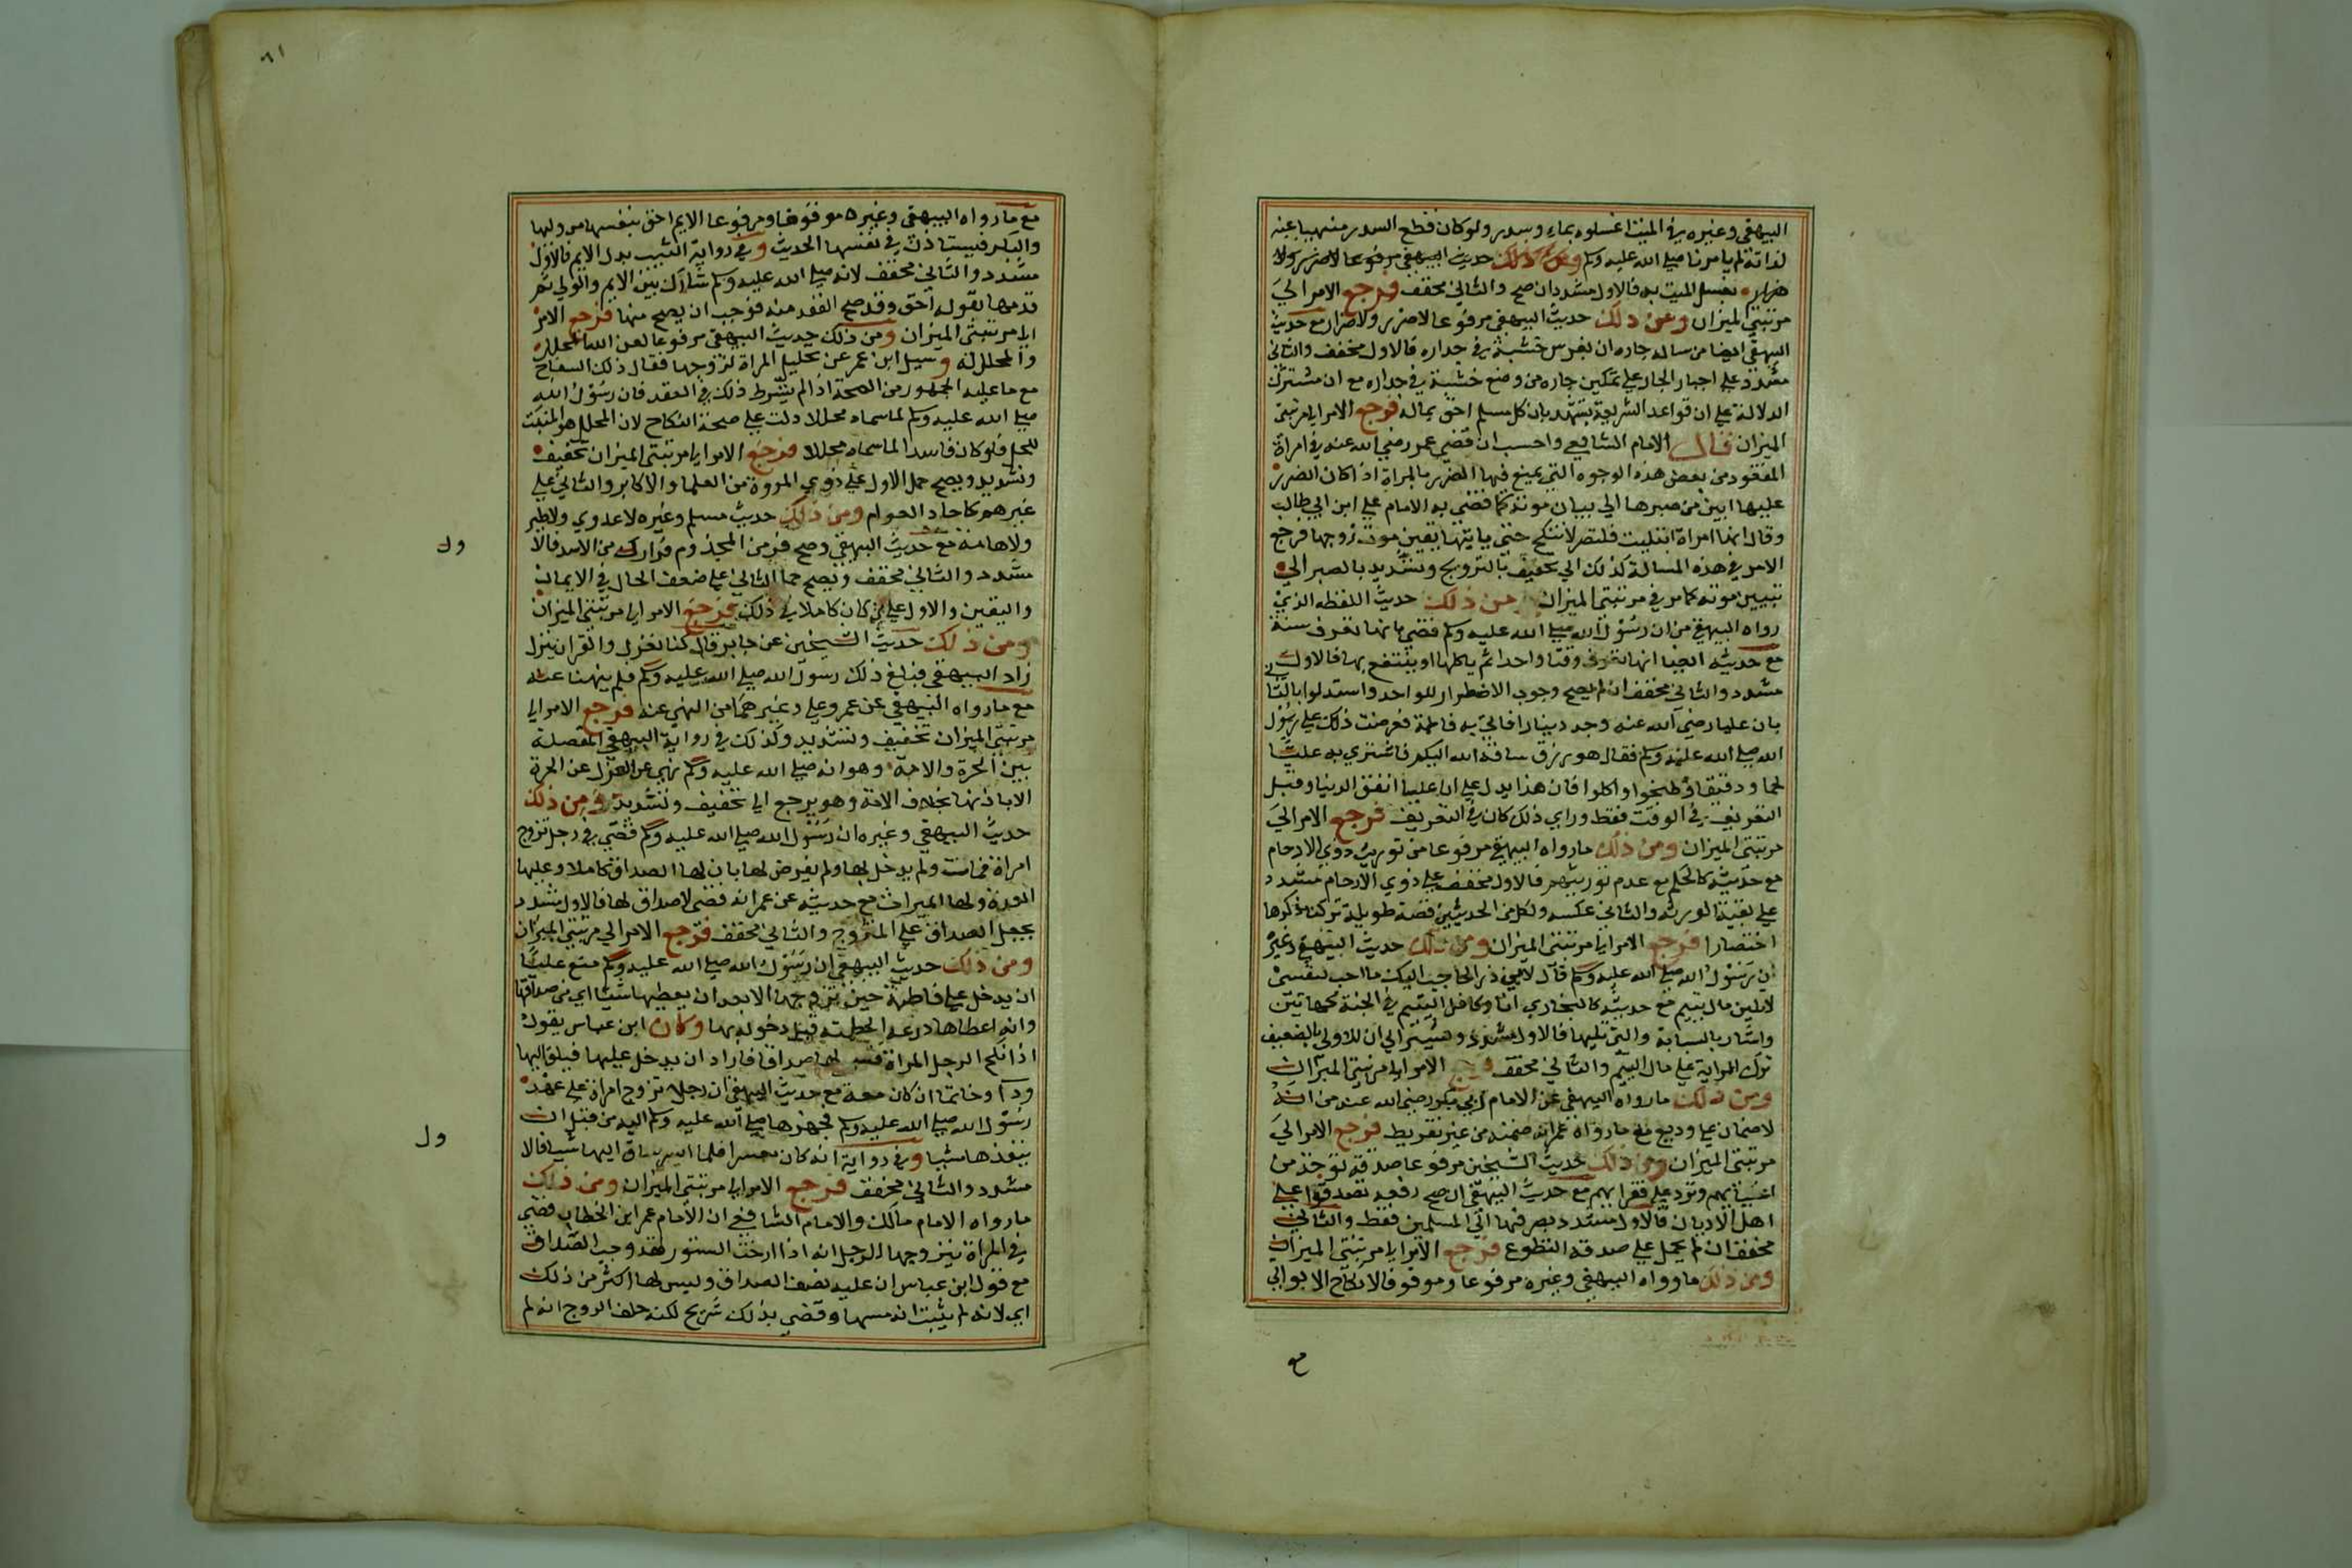 البيهقي وغيره في الميت اغسلوه بماء وسدر ولو كان قطع السدر منهيا عنه
لذاته لم يامرنا صلي الله عليه وسلم ومن ذلك حديث البيهقي مرفوعا
بغسل الميت به فالاول مشدد ان صح والثاني مخفف فرجع الامر الي
مرتبتي الميزان ومن ذلك حديث البيهقي مرفوعا لا ضرر ولا ضرار مع حديث
البيهقي ايضا من ساله جاره ان يغرس خشبة في جداره فالاول مخفف والثاني
مشدد علي اجبار الجار علي تمكين جاره من وضع خشبة في جداره مع ان مشترك
الدلالة علي ان قواعد الشريعة تشهد بان كل مسلم احق بماله فرجع الامر الي مرتبتي
الميزان قال الامام الشافعي واحسب ان قضي عمر رضي الله عنه في امراة
المفقود من بعض هذه الوجوه التي يمنع فيها الضرر بالمراة اذا كان الضرر
عليها ابين من صبرها الي بيان موته كما قضي به الامام علي ابن ابي طالب
وقال انها امراة ابتليت فلتصبر لا تنكح حتي ياتيها يقين موت زوجها فرجع
الامر في هذه المسالة كذلك الي تخفيف بالتزويج وتشديد بالصبر الي
تبيين موته كما مر في مرتبتي الميزان ومن ذلك حديث اللقطه الذي
رواه البيهقي من ان رسول الله صلي الله عليه وسلم قضي بانها تعرف سنة
مع حديثه ايضا انها تعرف وقتا واحدا ثم ياكلها او ينتفع بها فالاول
مشدد والثاني مخفف ان لم يصح وجوب الاضطرار للواحد واستدلوا بالثا
بان عليا رضي الله عنه وجد دينارا فاتي به فاطمة فعرضت ذلك علي رسول
الله صلي الله عليه وسلم فقال هو رزق ساقه الله اليكم فاشتري به علي
لحما ودقيقا وطبخوا واكلوا فان هذا يدل علي ان عليا انفق الدينار قبل
التعريف في الوقت فقط وراي ذلك كان في التعريف فرجع الامر الي
مرتبتي الميزان ومن ذلك ما رواه البيهقي مرفوعا من توريث ذوي الارحام
مع حديثه كالحاكم بعدم توريثهم فالاول مخفف علي ذوي الارحام مشدد
علي بقية الورثة والثاني عكسه ولكل من الحديثين قصة طويلة تركنا ذكرها
اختصارا فرجع الامر الي مرتبتي الميزان ومن ذلك حديث البيهقي وغيره
ان رسول الله صلي الله عليه وسلم قال لابي ذر اني احب اليك ما احب لنفسي
لا تلين مال يتيم مع حديثه كالبخاري انا وكافل اليتيم في الجنة كهاتين
واشار بالسبابة والتي تليها فالاول مشدد ويشير الي ان الاولي بالضعيف
ترك الولاية علي مال اليتيم والثاني مخفف فرجع الامر الي مرتبتي الميزان
ومن ذلك ما رواه البيهقي عن الامام ابي بكر رضي الله عنه من انه
لا ضمان علي وديع مع ما رواه عمر انه ضمنه من غير تفريط فرجع الامر الي
مرتبتي الميزان ومن ذلك حديث الشيخين مرفوعا صدقة توخذ من
اغنيائهم وترد علي فقرائهم مع حديث البيهقي ان صح رفعه تصدقوا علي
اهل الاديان فالاول مشدد بصرفها الي المسلمين فقط والثاني
مخفف ان لم يحمل علي صدقة التطوع فرجع الامر الي مرتبتي الميزان
ومن ذلك ما رواه البيهقي وغيره مرفوعا وموقوفا لا نكاح الا بولي
مع
٦١
مع ما رواه البيهقي وغيره موقوفا ومرفوعا الايم احق بنفسها من وليها
والبكر فيستاذن في نفسها الحديث وفي رواية الثيب بدل الايم فالاول
مشدد والثاني مخفف لانه صلي الله عليه وسلم شارك بين الايم والولي ثم
قدمها بقوله احق وقد صح العقد منه فوجب ان يصح منها فرجع الامر
الي مرتبتي الميزان ومن ذلك حديث البيهقي مرفوعا لعن الله المحلل
والمحلل له وسيل ابن عمر عن تحليل المراة لزوجها فقال ذلك السفاح
مع ما عليه الجمهور من الصحة اذا لم يشترط ذلك في العقد فان رسول الله
صلي الله عليه وسلم لما سماه محللا دلت علي صحة النكاح لان المحلل هو المثبت
للحل فلو كان فاسدا لما سماه محللا فرجع الامر الي مرتبتي الميزان تخفيف
وتشديد ويصح حمل الاول علي ذوي المروة من العلما والاكابر والثاني علي
غيرهم كاحاد العوام ومن ذلك حديث مسلم وغيره لا عدوي ولا طير
ولا هامة مع حديث البيهقي وصح فر من المجذوم فرارك من الاسد فالا
مشدد والثاني مخفف ويصح حمل الثاني علي ضعف الحال في الايمان
واليقين والاول علي من كان كاملا في ذلك فرجع الامر الي مرتبتي الميزان
ومن ذلك حديث الشيخين عن جابر قال كنا نعزل والقران ينزل
زاد البيهقي فبلغ ذلك رسول الله صلي الله عليه وسلم فلم ينهنا عنه
مع ما رواه البيهقي عن عمر وعلي وغيرهما من النهي عنه فرجع الامر الي
مرتبتي الميزان تخفيف وتشديد وكذلك في رواية البيهقي المفصلة
بين الحرة والامة وهو انه صلي الله عليه وسلم نهي عن العزل عن الحرة
الا باذنها بخلاف الامة وهو يرجع الي تخفيف وتشديد ومن ذلك
حديث البيهقي وغيره ان رسول الله صلي الله عليه وسلم قضي في رجل تزوج
امراة فماتت ولم يدخل بها ولم يفرض لها بان لها الصداق كاملا وعليها
العدة ولها الميراث مع حديثه عن عمر انه قضي لا صداق لها فالاول مشدد
بجعل الصداق علي المتزوج والثاني مخفف فرجع الامر الي مرتبتي الميزان
ومن ذلك حديث البيهقي ان رسول الله صلي الله عليه وسلم منع عليا
ان يدخل علي فاطمة حين تزوجها الا بعد ان يعطيها شيئا اي من صداقها
وانه اعطاها درعه الحطمية قبل دخوله بها وكان ابن عباس يقول
اذا نكح الرجل المراة فسمي لها صداقا فاراد ان يدخل عليها فيلق اليها
ردا وخاتما ان كان معه مع حديث البيهقي ان رجلا تزوج امراة علي عهد
رسول الله صلي الله عليه وسلم فجهزها صلي الله عليه وسلم اليه من قبل ان
ينقدها شيا وفي رواية انه كان معسرا فلما ايسر ساق اليها شيا فالا
مشدد والثاني مخفف فرجع الامر الي مرتبتي الميزان ومن ذلك
ما رواه الامام مالك والامام الشافعي ان الامام عمر ابن الخطاب قضي
في المراة يتزوجها الرجل انه اذا ارخت الستور فقد وجب الصداق
مع قول ابن عباس ان عليه نصف الصداق وليس لها اكثر من ذلك
اي لانه لم يثبت انه مسها وقضي بذلك شريح لكنه حلف الزوج انه لم
ول
ول